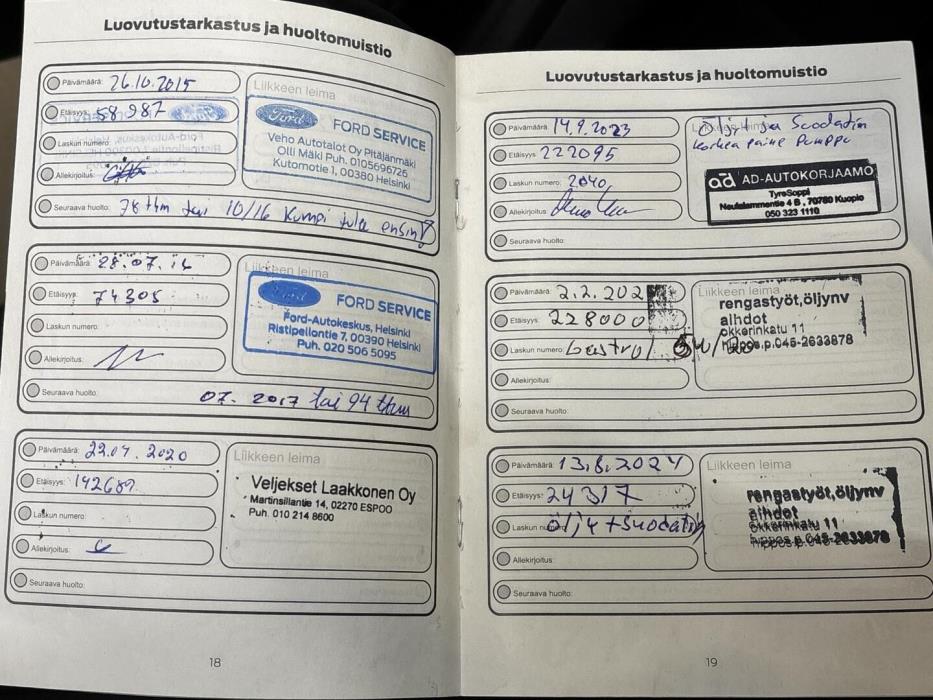 Luovutustarkastus ja huoltomuistio
Päivämäärä: 26.10.2015
Etäisyys: 58 987
Laskun numero:
Allekirjoitus:
Seuraava huolto: 78 tkm tai 10/16 kumpi tule ensin!
Liikkeen leima
Ford FORD SERVICE
Veho Autotalot Oy Pitäjänmäki
Olli Mäki Puh. 0105696726
Kutomotie 1, 00380 Helsinki
Päivämäärä: 28.07.16
Etäisyys: 74305
Laskun numero:
Allekirjoitus:
Seuraava huolto: 07. 2017 tai 94 tkm
Liikkeen leima
Ford FORD SERVICE
Ford-Autokeskus, Helsinki
Ristipellontie 7, 00390 Helsinki
Puh. 020 506 5095
Päivämäärä: 22.04.2020
Etäisyys: 142689
Laskun numero:
Allekirjoitus:
Seuraava huolto:
Liikkeen leima
Veljekset Laakkonen Oy
Martinsillantie 14, 02270 ESPOO
Puh. 010 214 8600
18
Luovutustarkastus ja huoltomuistio
Päivämäärä: 14.9.2023
Etäisyys 222095
Laskun numero: 2040
Allekirjoitus:
Seuraava huolto:
Öljyt ja Suodatin
Korkea paine Pumppu
ad AD-AUTOKORJAAMO
TyreSoppi
Neulalammentie 4 B, 70780 Kuopio
050 323 1110
Päivämäärä: 2.2.202
Etäisyys: 228000
Laskun numero: Castrol
Allekirjoitus:
Seuraava huolto:
Liikkeen leima
rengastyöt,öljynv
aihdot
okkerinkatu 11
hippos.p.045-2633878
Päivämäärä: 13.8.2024
Etäisyys: 24317
Laskun numero: öljy + Suodatin
Allekirjoitus:
Seuraava huolto:
Liikkeen leima
rengastyöt,öljynv
aihdot
okkerinkatu 11
hippos.p.045-2633878
19